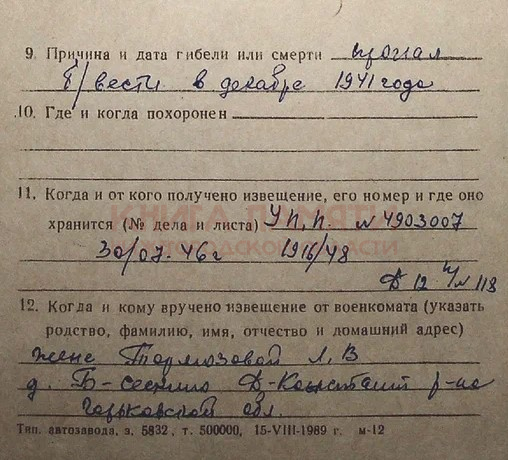 9. Причина и дата гибели или смерти пропал
б/вести в декабре 1941 года
10. Где и когда похоронен
11. Когда и от кого получено извещение, его номер и где оно
хранится (№ дела и листа) УП.П. № 4903007
30/07-46 г 1916/48
Д 12 л 118
12. Когда и кому вручено извещение от военкомата (указать
родство, фамилию, имя, отчество и домашний адрес)
жене Л, В
д. Б- Д- р-на
Горьковской обл.
Тип. автозавода, з. 5832, т. 500000, 15-VIII-1989 г. м-12
КНИГА ПАМЯТИ
НИЖЕГОРОДСКОЙ ОБЛАСТИ